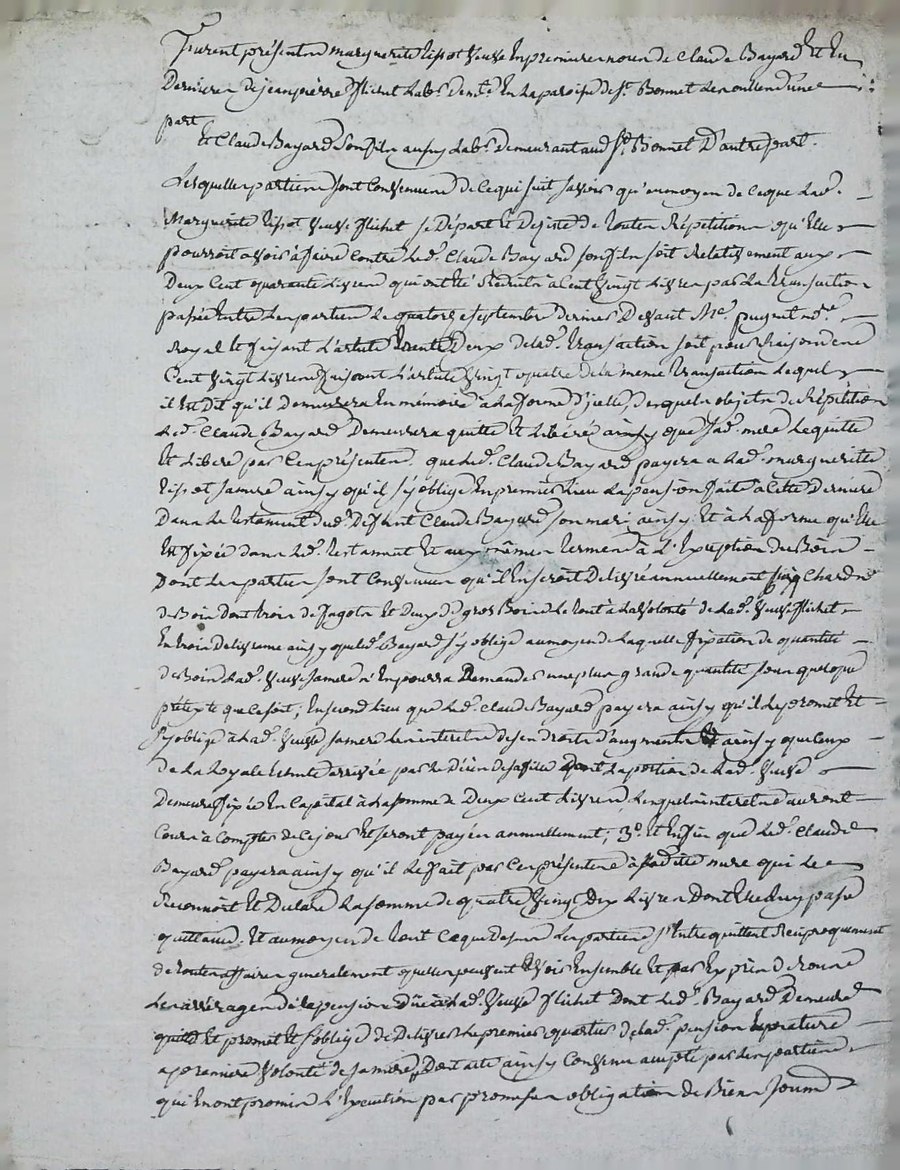 Furent présentes marguerite tissot veuve En premieres noces de Claude Bayard Et En
Dernieres de jean pierre flichet Lab.r dem.t En La paroisse de S.t Bonnet Les oulles d'une
part
Et Claude Bayard son fils aussy Lab.r demeurant aud. S.t Bonnet D'autre part.
Lesquelles parties sont Convenues de ce qui suit savoir qu'au moyen de ce que Lad.
Marguerite tissot veuve flichet se Départ Et Désiste de toutes Répétitions qu'Elle
pourroit avoir à faire Contre Led. Claude Bayard son fils soit Relativement aux
Deux Cent quarante Livres qui ont été Réduits à Cent vingt Livres par La transaction
passée Entre Les parties Le quatorze septembre dernier Devant M.e pugnet no.re
Royal Et faisant L'article trente Deux de lad. transaction soit pour Raison des
Cent vingt Livres faisant L'article vingt quatre de la meme transaction Lequel
il Est Dit qu'il Demeurera En mémoire à La forme d'jcelle, desquels objets de Répétition
Led. Claude Bayard Demeurera quitte Et Libéré ainsy que sad. mere Le quitte
Et Libere par Ces présentes. que Led. Claude Bayard payera a Lad. marguerite
tissot sa mere ainsy qu'il s'y oblige En premier Lieu La pension faite à Cette Derniere
Dans Le testament dud. Deffunt Claude Bayard son mari ainsy Et à La forme qu'Elle
Est fixée dans Led. testament Et aux mêmes termes à L'Exception du Bois
Dont Les parties sont Convenues qu'il En seroit Délivré annuellement Cinq Chards
de Bois Dont trois de fagots Et Deux de gros Bois Le tout à La volonté de Lad. veuve flichet
En trois Délivrances ainsy que led. Bayard s'y oblige au moyen de Laquelle fixation de quantité
de Bois Lad. veuve sa mere n'En pourra Demander une plus grande quantité sous quelque
prétexte que Ce soit; En second Lieu que Led. Claude Bayard payera ainsy qu'il Le promet Et
s'y oblige à Lad. veuve sa mere Les interets de ses droits d'augment ainsy que Ceux
de La Royale Echute arrivée par Le Décès de sa fille Dont La portion de Lad. veuve
Demeure fixée En Capital à La somme de Deux Cent Livres Lesquels interets auront
Cours à Compter de Ce jour Et seront payés annuellement; 3.o Et Enfin que Led. Claude
Bayard payera ainsy qu'il Le fait par Ces présentes à sad. mere qui Le
Reconnoît Et Déclare La somme de quatre vingt Dix Livres Dont Elle Luy passe
quittance. Et au moyen de tout Ce que Dessus Les parties s'Entrequittent Réciproquement
de toutes affaires generalement quelles peuvent avoir Ensemble Et par Exprès de tous
Les arrérages de La pension Düe à Lad. veuve flichet Dont Led. Bayard Demeure
quitte Et promet Et s'oblige de Délivrer Le premier quartier de Lad. pension En nature
a premiere volonté de sa mere, Dont acte ainsy Convenu accepté par Les parties
qui En ont promis L'Execution par promesse obligation de Biens soumis